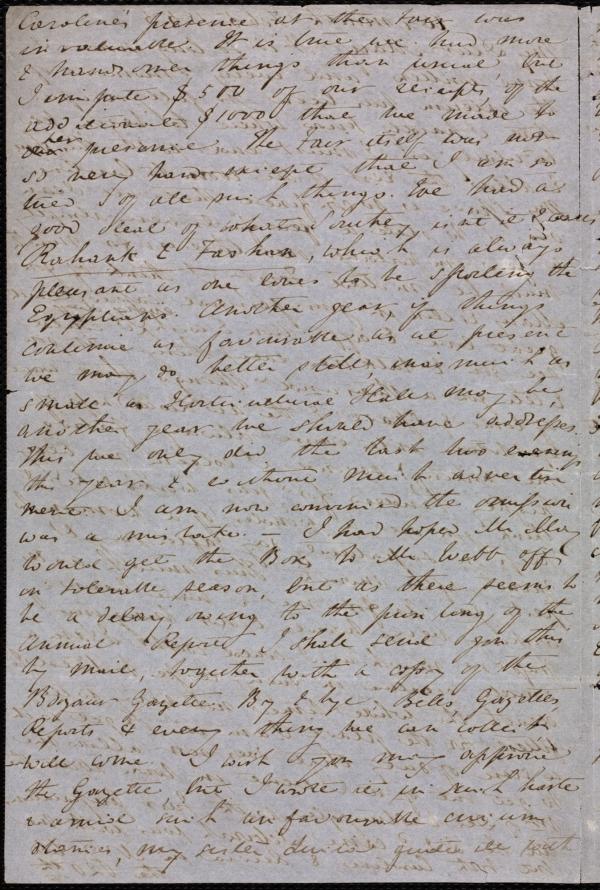 Caroline's presence at the Fair was
invaluable. It is true we had more
& handsomer things than usual but
I impute $500 of our receipts, of the
additional $1000 that we made to
her presence. The Fair itself was not
so very hard except that I am so
tired of all such things. We had a
good deal of what isn't it
& Fashion, which is always
pleasant as one loves to be spoiling the
Egyptians. Another year, if things
continue as favourable as at present
we may do better still, inasmuch as
small as Horticultural Hall may be,
another year we should have addresses.
This we only did the last two evenings
this year & without much advertise
ment. I am now convinced the omission
was a mistake. — I had hoped Mr May
would get the Box to Mr Webb off
in tolerable season, but as there seems to
be a delay owing to the printing of the
Annual Report, I shall send you this
by mail, together with a copy of the
Bazaar Gazette. By & bye Bells Gazettes
Reports & every thing we can collect
will come. I wish you may approve
the Gazette but I wrote it in such haste
& amid such unfavourable circum
stances, my sister being quite ill with